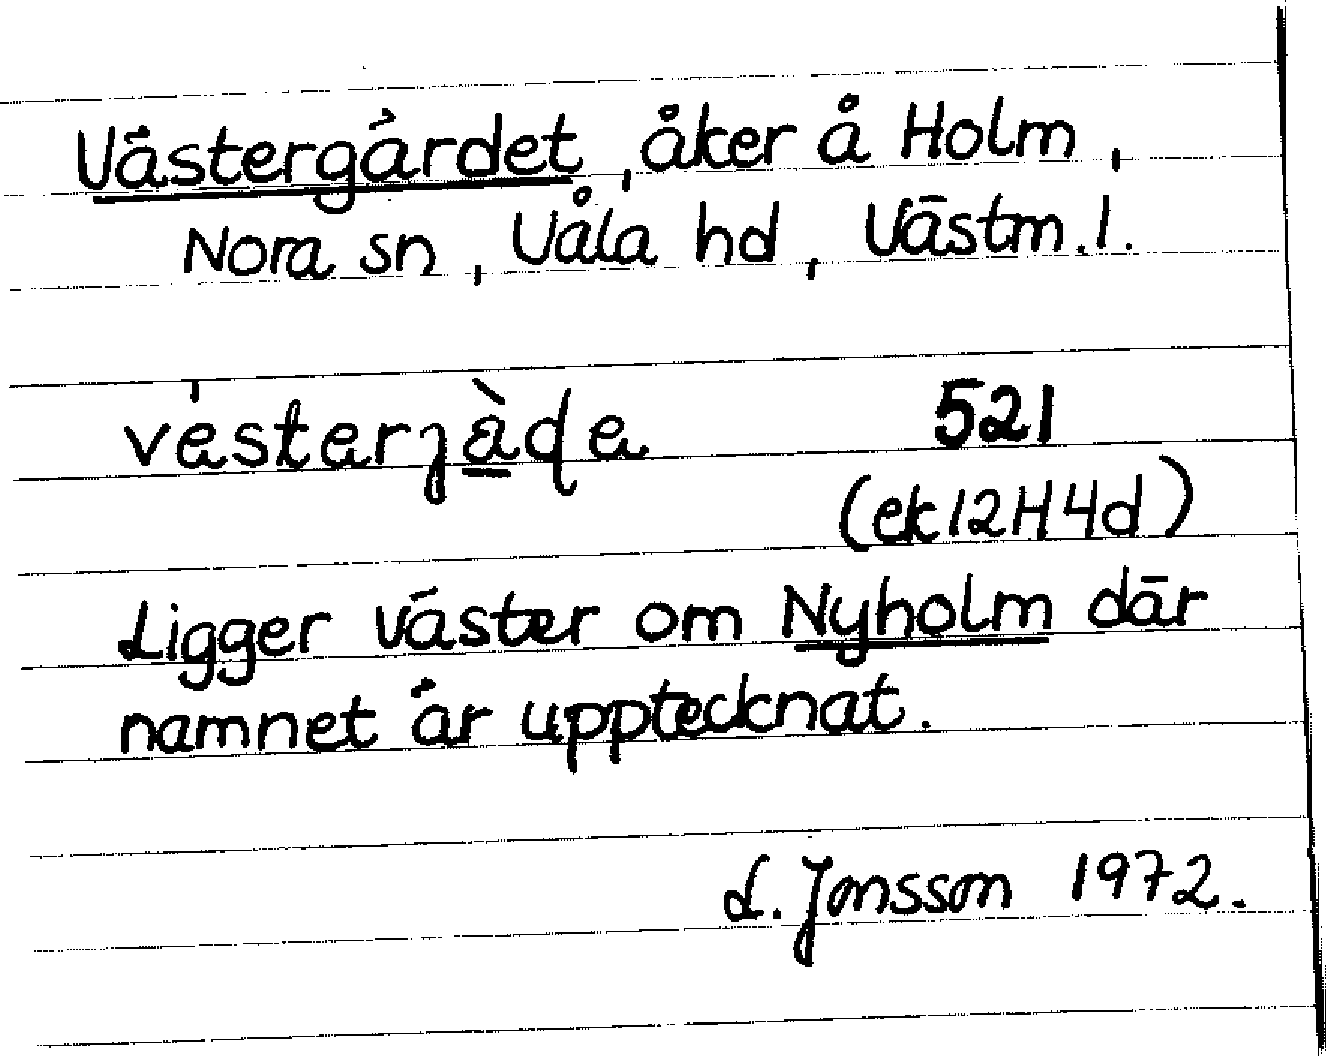 Västergärdet, åker å Holm,
Nora sn, Våla hd, Västm.l.
521
(ek 12H4d)
Ligger väster om Nyholm där
namnet är upptecknat.
L. Jonsson 1972.